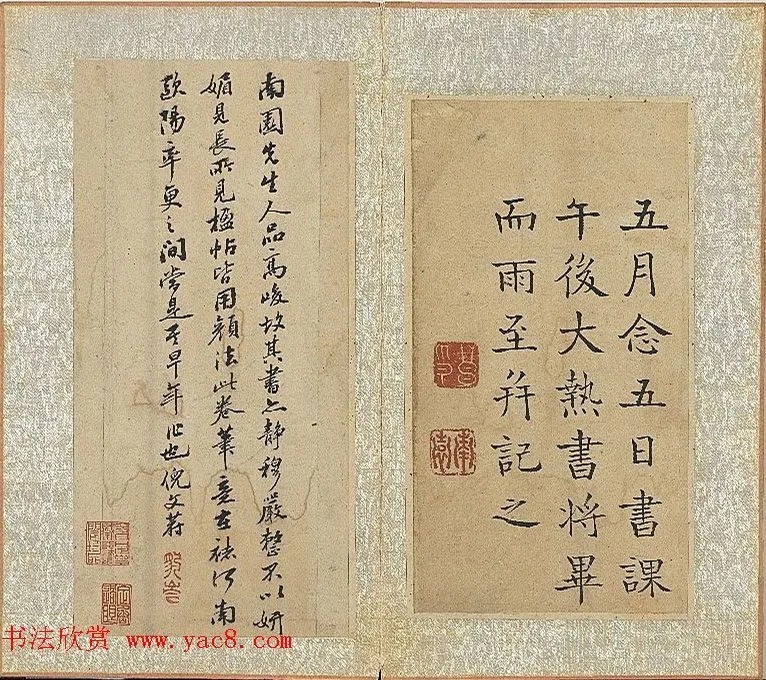 五月念五日書課
午後大熱書將畢
而雨至并記之
南園先生人品高峻故其書亦靜穆嚴整不以妍
媚見長所見楹帖皆用顏法此卷筆意在褚河南
歐陽率更之間當是其早年作也倪文蔚
书法欣赏 www.yac8.com